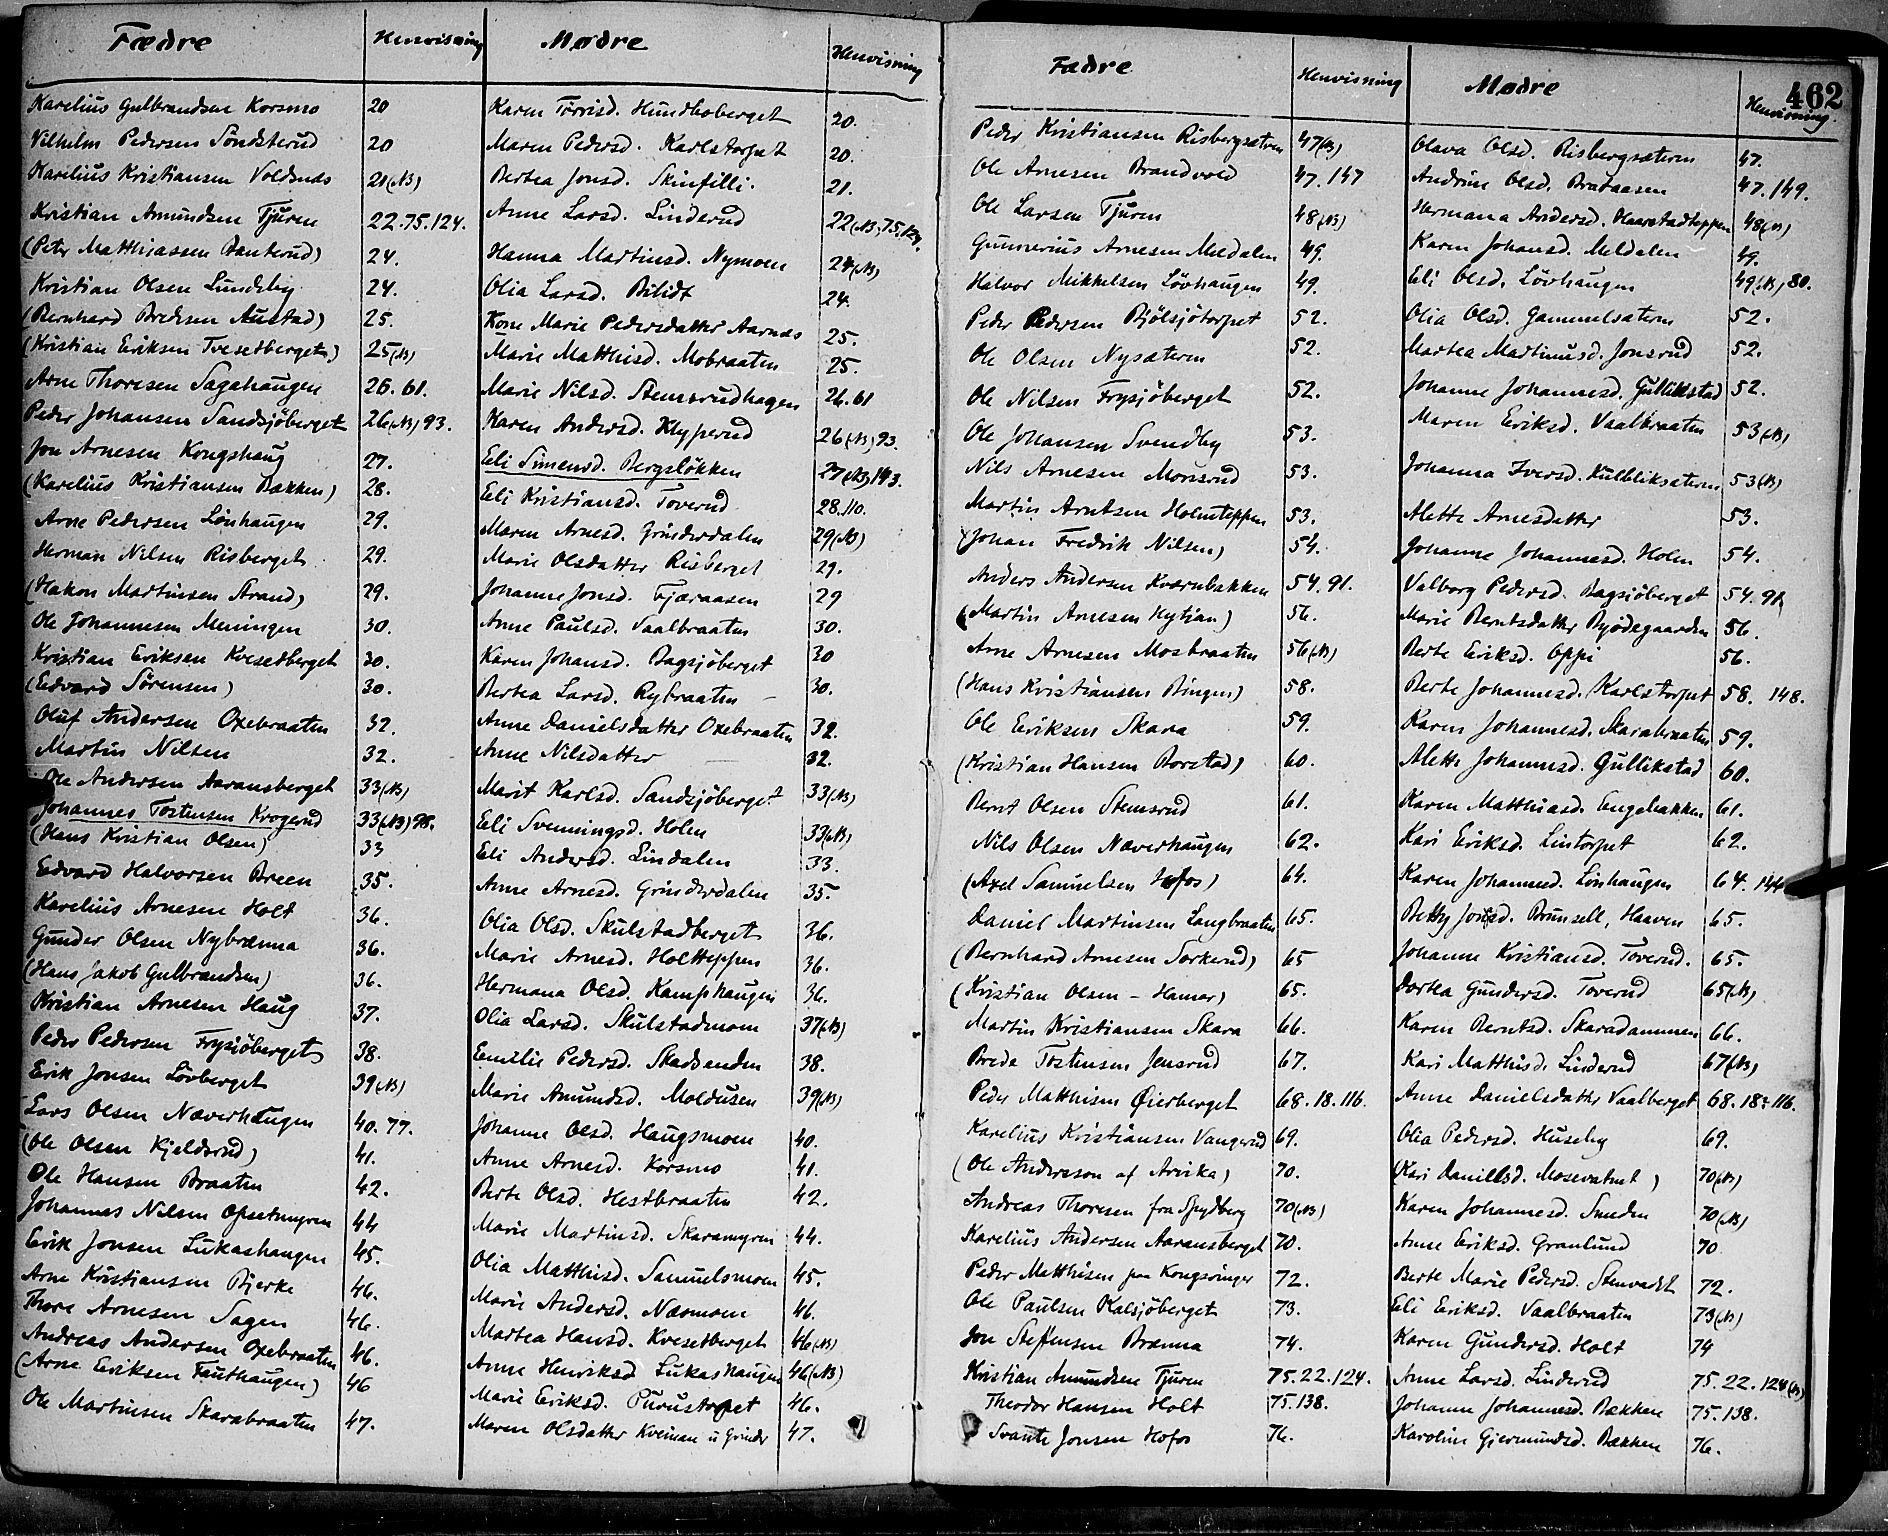 Fædre Henvisning Mødre Henvisning
Karelius Gulbrandsen Korsmo 20 Karen Torrisd. Hundkoberget 20.
Vilhelm Pedersen Sondsterud 20 Maren Pedersd. Karlstorpet 20.
Karelius Kristiansen Voldsnæs 21(NB) Bertea Jonsd. Skinfilli. 21.
Kristian Amundsen Tjuren 22.75.124. Anne Larsd. Linderud 22(NB),75.124.
(Peter Matthiasen Banterud) 24. Hanna Martinsd. Nymoen 24(NB)
Kristian Olsen Lundsby 24. Olia Larsd. Bitidt 24.
(Bernhard Bredesen Austad) 25. Kone Marie Pedersdatter Aarnæs 25.
(Kristian Eriksen Tvesetberget) 25(NB) Marie Matthisd. Mobraaten 25.
Arne Thoresen Sagahaugen 26.61. Marie Nilsd. Stensrudhagen 26.61
Peder Johansen Sandsjöberget 26(NB),93. Karen Andersd. Klyperud 26(NB),93.
Jon Arnesen Kongshaug 27. Eli Simensd. Bergsløkken 27(NB),143.
(Karelius Kristiansen Bækken) 28. Eli Kristiansd. Toverud 28.110.
Arne Pedersen Linhaugen 29. Maren Arnesd. Grinderdalen 29(NB)
Herman Nilsen Risberget 29. Marie Olsdatter Risberget 29.
(Hakon Martinsen Strand) 29. Johanne Jonsd. Fjæraasen 29
Ole Johannesen Meningen 30. Anne Paulsd. Vaalbraaten 30.
Kristian Eriksen Kvesetberget 30. Karen Johansd. Bagsjøberget 30
(Edvard Sörensen) 30. Bertea Larsd. Rybraaten 30.
Oluf Andersen Oxebraaten 32. Anne Danielsdatter Oxebraaten 32.
Martin Nilsen 32. Anne Nilsdatter 32.
Ole Andersen Aaransberget 33(NB) Marit Karlsd. Sandsjöberget 33(NB)
Johannes Tostensen Krogerud 33(NB) Eli Svenningsd. Holen 33(NB)
(Hans Kristian Olsen) 33 Eli Andersd. Lindalen 33.
Edvard Halvorsen Breen 35. Anne Arnesd. Grinderdalen 35.
Karelius Arnesen Holt 36. Olia Olsd. Skulstadberget 36.
Gunder Olsen Nybrænna 36. Marie Arnesd. Holtteppen 36.
(Hans Jakob Gulbrandsen) 36. Hermana Olsd. Kamphaugen 36.
Kristian Arnesen Haug 37. Olia Larsd. Skulstadmoen 37(NB)
Peder Pedersen Frysjöberget 38. Emilie Pedersd. Skadsenden 38.
Erik Jonsen Lövberget 39(NB) Marie Amundsd. Moldusen 39(NB)
Lars Olsen Næverhaugen 40.77. Johanne Olsd. Haugsmoen 40.
(Ole Olsen Kjeldsrud) 41. Anne Arnesd. Korsmo 41.
Ole Hansen Braaten 42. Berte Olsd. Hestbraaten 42.
Johannes Nilsen Opsetmyren 44 Marie Martinsd. Skaramyren 44.
Erik Jonsen Lukashaugen 45. Olia Matthisd. Samuelsmoen 45.
Arne Kristiansen Bjerke 46. Marie Andersd. Næsmoen 46.
Thore Arnesen Sagen 46. Martea Hansd. Kvesetberget 46(NB)
Andreas Andersen Oxebraaten 46. Anne Henriksd Lukashaugen 46(NB)
(Arne Eriksen Fauthaugen) 46 Marie Eriksd. Purustorpet 46.
Ole Martinsen Skarabraaten 47. Maren Olsdatter Kveinan i Grinder 47.
462
Fædre Henvisning Mødre Henvisning
Peder Kristiansen Risbergsæteren 47(NB) Olava Olsd. Risbergsæteren 47.
Ole Arnesen Brandvold 47.147 Andrine Olsd. Brataasen 47.149.
Ole Larsen Tjuren 48(NB) Hermana Andersd. Haarstadteppen 48(NB)
Gunnerius Arnesen Meldalen 49. Karen Johansd. Meldalen 49.
Halvor Mikkelsen Lövhaugen 49. Eli Olsd. Lövhaugen 49(NB),80.
Peder Pedersen Bjölsjötorpet 52. Olia Olsd. Gammelsæteren 52.
Ole Olsen Nysæteren 52. Martea Martinusd. Jonsrud 52.
Ole Nilsen Frysjöberget 52. Johanne Johannesd. Gullikstad 52.
Ole Johansen Svendby 53. Maren Eriksd. Vaalbraaten 53(NB)
Nils Arnesen Monsrud 53. Johanna Iversd. Kulbliksæteren 53(NB)
Martin Arntsen Holmteppen 53. Alette Arnesdatter 53.
(Johan Fredrik Nilsen) 54. Johanne Johannesd. Holen 54.
Anders Andersen Kværnbækken 54.91. Valborg Pedersd. Bagsjöberget 54.91.
(Martin Arnesen Nytjan) 56. Marie Berntsdatter Bjödegaarden 56.
Arne Arnesen Mosbraaten 56(NB) Berte Eriksd. Oppi 56.
(Hans Kristiansen Bingen) 58. Berte Johannesd. Karlstorpet 58. 148.
Ole Eriksen Skara 59. Karen Johannesd. Skarabraaten 59.
(Kristian Hansen Borstad) 60. Alette Johannesd. Gullikstad 60.
Bernt Olsen Stemsrud 61. Karen Matthiasd. Engebakken 61.
Nils Olsen Næverhaugen 62. Kari Eriksd. Lintorpet 62.
(Axel Samuelsen Hofos) 64. Karen Johannesd. Linhaugen 64. 144
Daniel Martinsen Langbraaten 65. Betty Jonsd. Brunsell, Haaven 65.
(Bernhard Arnesen Sorkerud) 65 Johanne Kristiansd. Toverud. 65.
(Kristian Olsen - Hamar) 65. Dortea Gundersd. Toverud 65(NB)
Martin Kristiansen Skara 66. Karen Berntsd. Skaradammen 66.
Brede Tostensen Jensrud 67. Kari Matthisd. Linderud 67(NB)
Peder Matthisen Øierberget 68.18.116. Anne Danielsdatter Vaalberget 68.18.116.
Karelius Kristiansen Vangerud 69. Olia Pedersd. Huseby 69.
(Ole Andersson af Arvika) 70. (Kari Danielsd. Mosevatnet) 70(NB)
Andreas Thoresen fra Spydberg 70(NB) Karen Johannesd. Smeden 70(NB)
Karelius Andersen Aaransberget 70. Anne Eriksd. Granlund 70
Peder Matthisen paa Kongsvinger 72. Berte Marie Pedersd. Stenvadet 72.
Ole Paulsen Kalsjöberget 73. Eli Eriksd. Vaalbraaten 73(NB)
Jon Steffensen Brænna 74. Karen Gundersd. Holt 74
Kristian Amundsen Tjuren 75.22.124. Anne Larsd. Linderud 75.22.124(NB)
Theodor Hansen Holt 75.138. Johanne Johannesd. Bækken 75.138.
Svante Jonsen Hofos 76. Karoline Gjermundsd. Bækken 76.